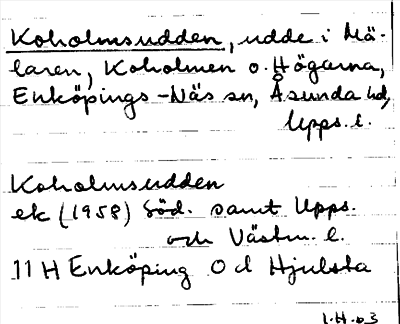 Koholmsudden, udde i Mä-
laren, Koholmen o. Högarna,
Enköpings-Näs sn, Åsunda hd,
Upps. l.
Koholmsudden
ek (1958) Söd. samt Upps.
och Västm. l.
11 H Enköping 0 d Hjulsta
I.H. 63